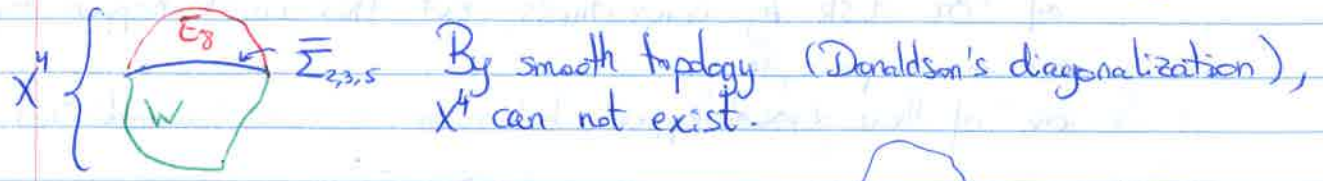 X⁴ { E₈ Σ̅₂,₃,₅ By smooth topology (Donaldson's diagonalization),
W X⁴ can not exist.